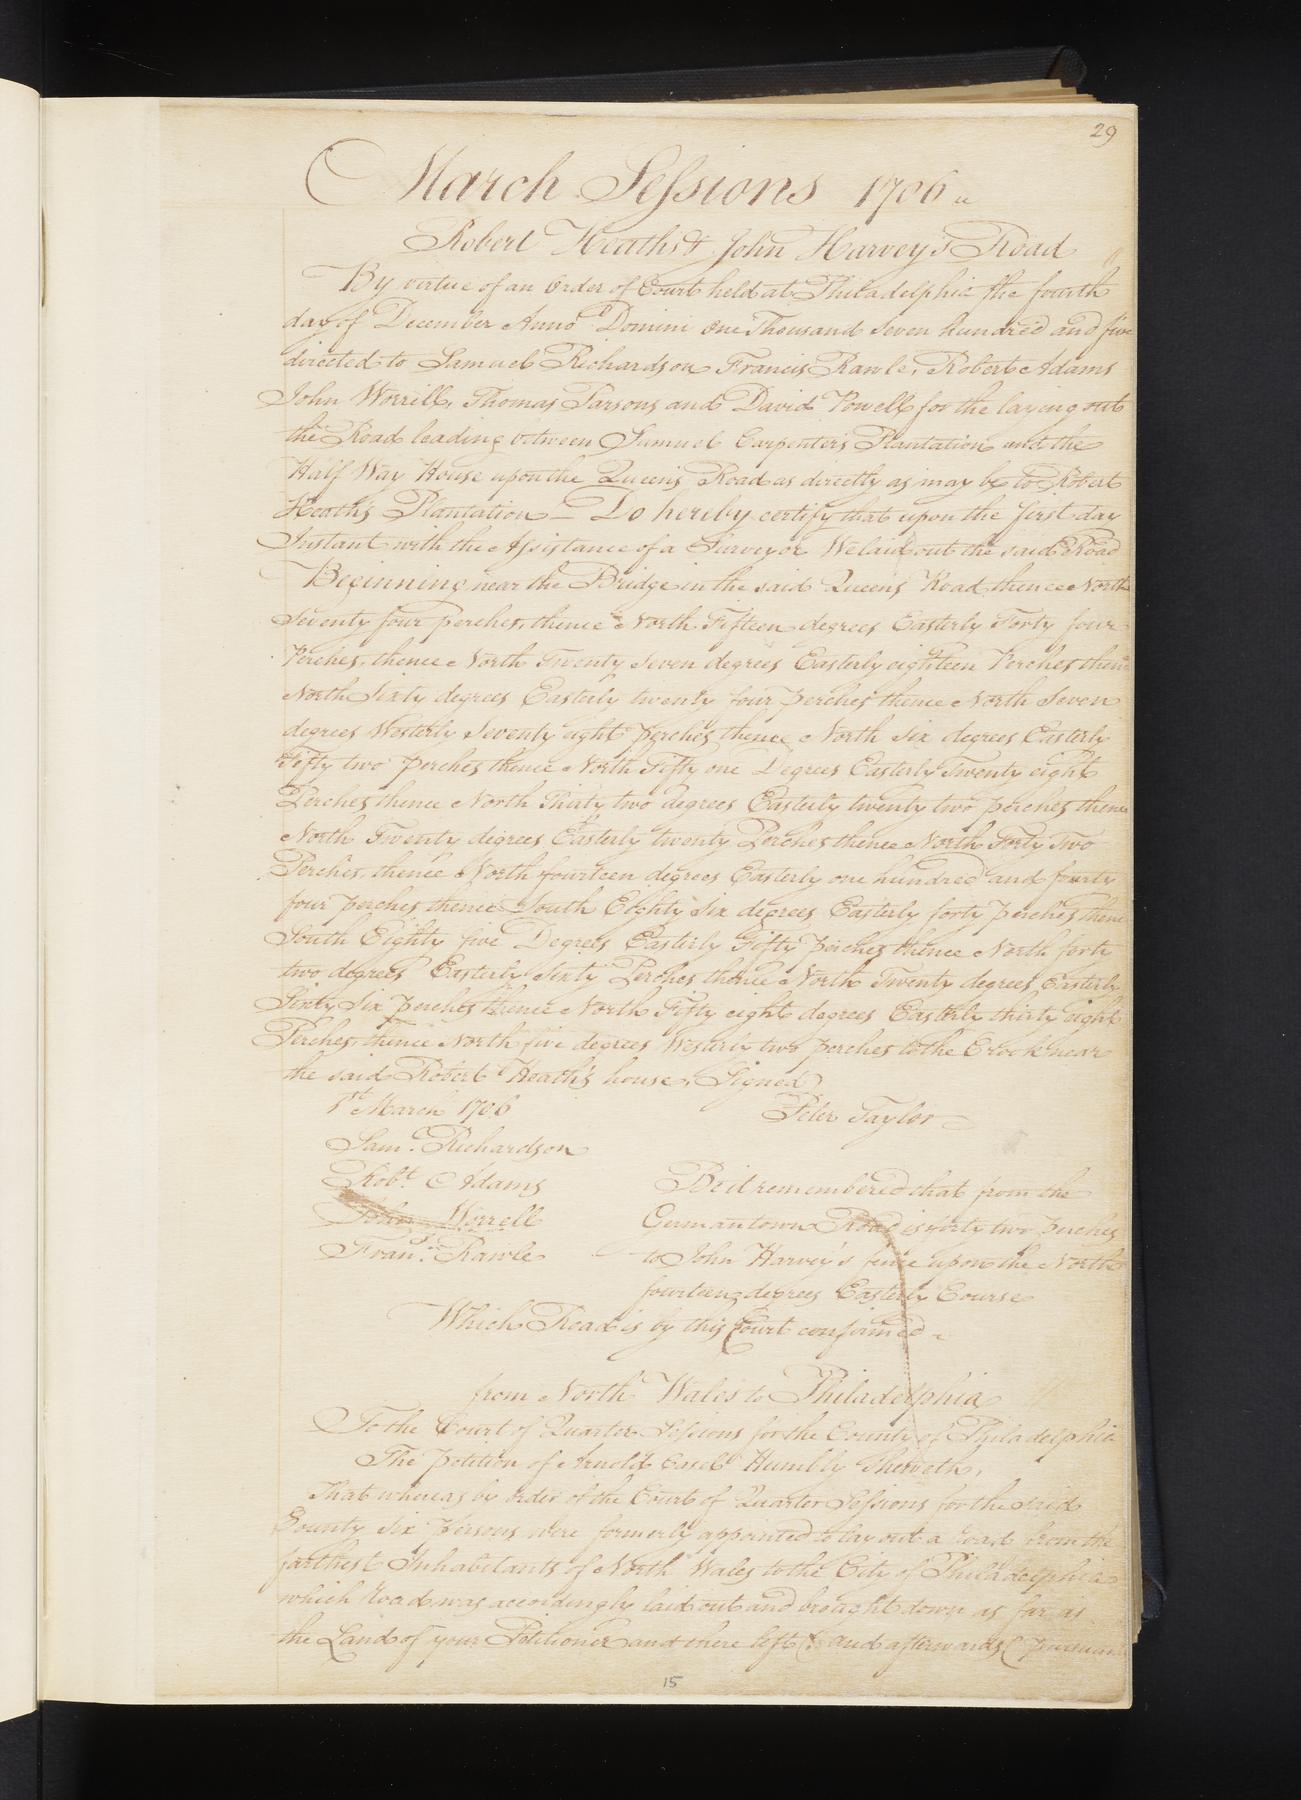 29
March Sessions 1706
Robert Heaths & John Harvey's Road
By virtue of an Order of Court held at Philadelphia the fourth
day of December Anno Domini One Thousand Seven hundred and five
directed to Samuel Richardson Francis Rawle, Robert Adams
John Worrill, Thomas Parsons and David Powell for the laying out
the Road leading between Samuel Carpenter's Plantation and the
Half Way House upon the Queen's Road as directly as may be to Robert
Heath's Plantation — Do hereby certify that upon the first day
Instant with the Assistance of a Surveyor We laid out the said Road
Beginning near the Bridge in the said Queens Road thence North
Seventy four perches, thence North Fifteen degrees Easterly Forty four
Perches, thence North Twenty Seven degrees Easterly eighteen Perches thence
North Sixty degrees Easterly twenty four perches thence North Seven
degrees Westerly Seventy eight perches thence North Six degrees Easterly
Fifty two perches thence North Fifty one Degrees Easterly Twenty eight
Perches thence North Thirty two degrees Easterly twenty two perches thence
North Twenty degrees Easterly twenty Perches thence North Forty Two
Perches, thence North fourteen degrees Easterly one hundred and fourty
four perches thence South Eighty Six degrees Easterly forty perches thence
South Eighty five Degrees Easterly Fifty perches thence North forty
two degrees Easterly Sixty Perches thence North Twenty degrees Easterly
Sixty Six perches thence North Fifty eight degrees Easterly thirty eight
Perches, thence North five degrees Westerly two perches to the Crook near
the said Robert Heath's house, Signed
1st March 1706
Peter Taylor
Sam.l Richardson
Rob.t Adams
Be it remembered that from the
John Worrell
Germantown Road is forty two perches
Fran.s Rawle
to John Harvey's fence upon the North
fourteen degrees Easterly Course
Which Road is by this Court confirmed
from North Wales to Philadelphia
To the Court of Quarter Sessions for the County of Philadelphia
The Petition of Arnold Humbly Sheweth,
That whereas by order of the Court of Quarter Sessions for the said
County Six Persons were formerly appointed to lay out a road from the
farthest Inhabitants of North Wales to the City of Philadelphia
which Road was accordingly laid out and brought down as far as
the Land of your Petitioner and there left & and afterwards
15